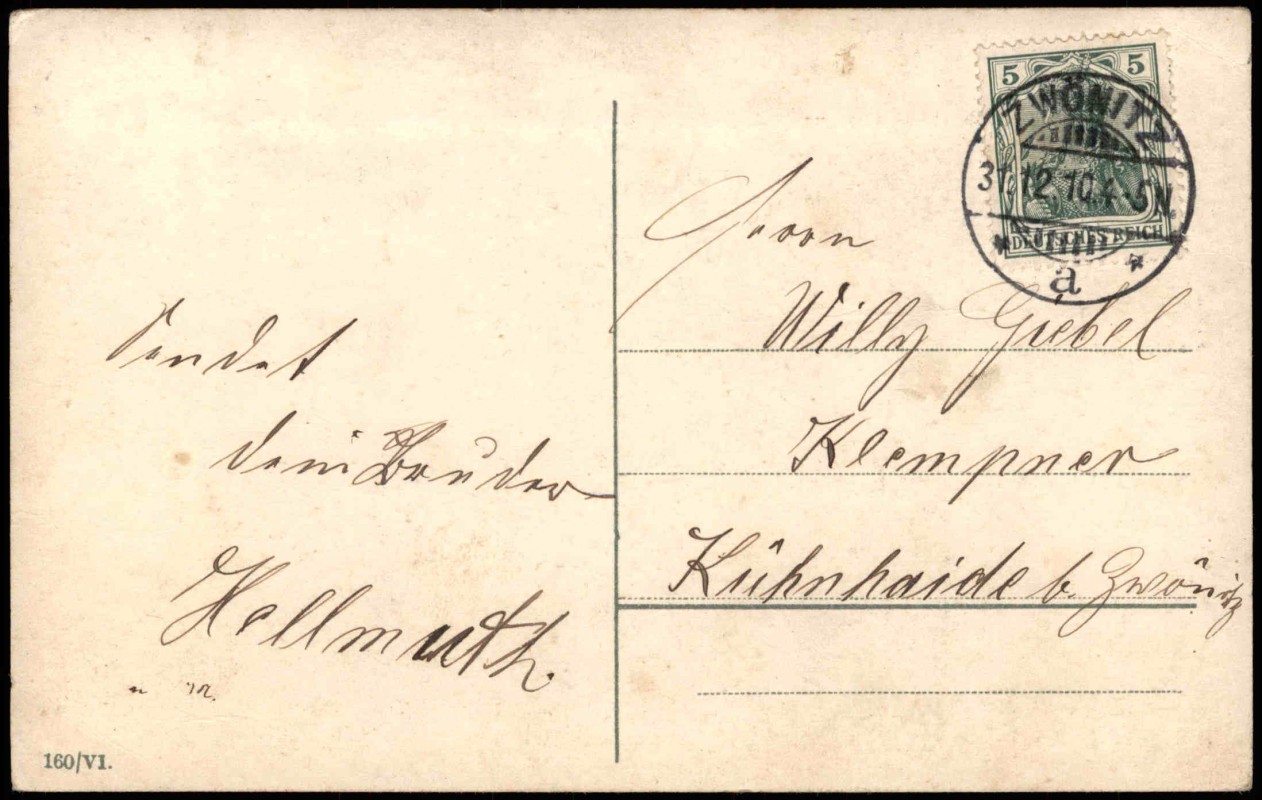 Sendet
dein Bruder
Hellmuth.
160/VI.
5 5
DEUTSCHES REICH
ZWÖNITZ
31.12.10.4-5N.
a
Herrn
Willy Giebel
Klempner
Kühnhaide b. Zwönitz